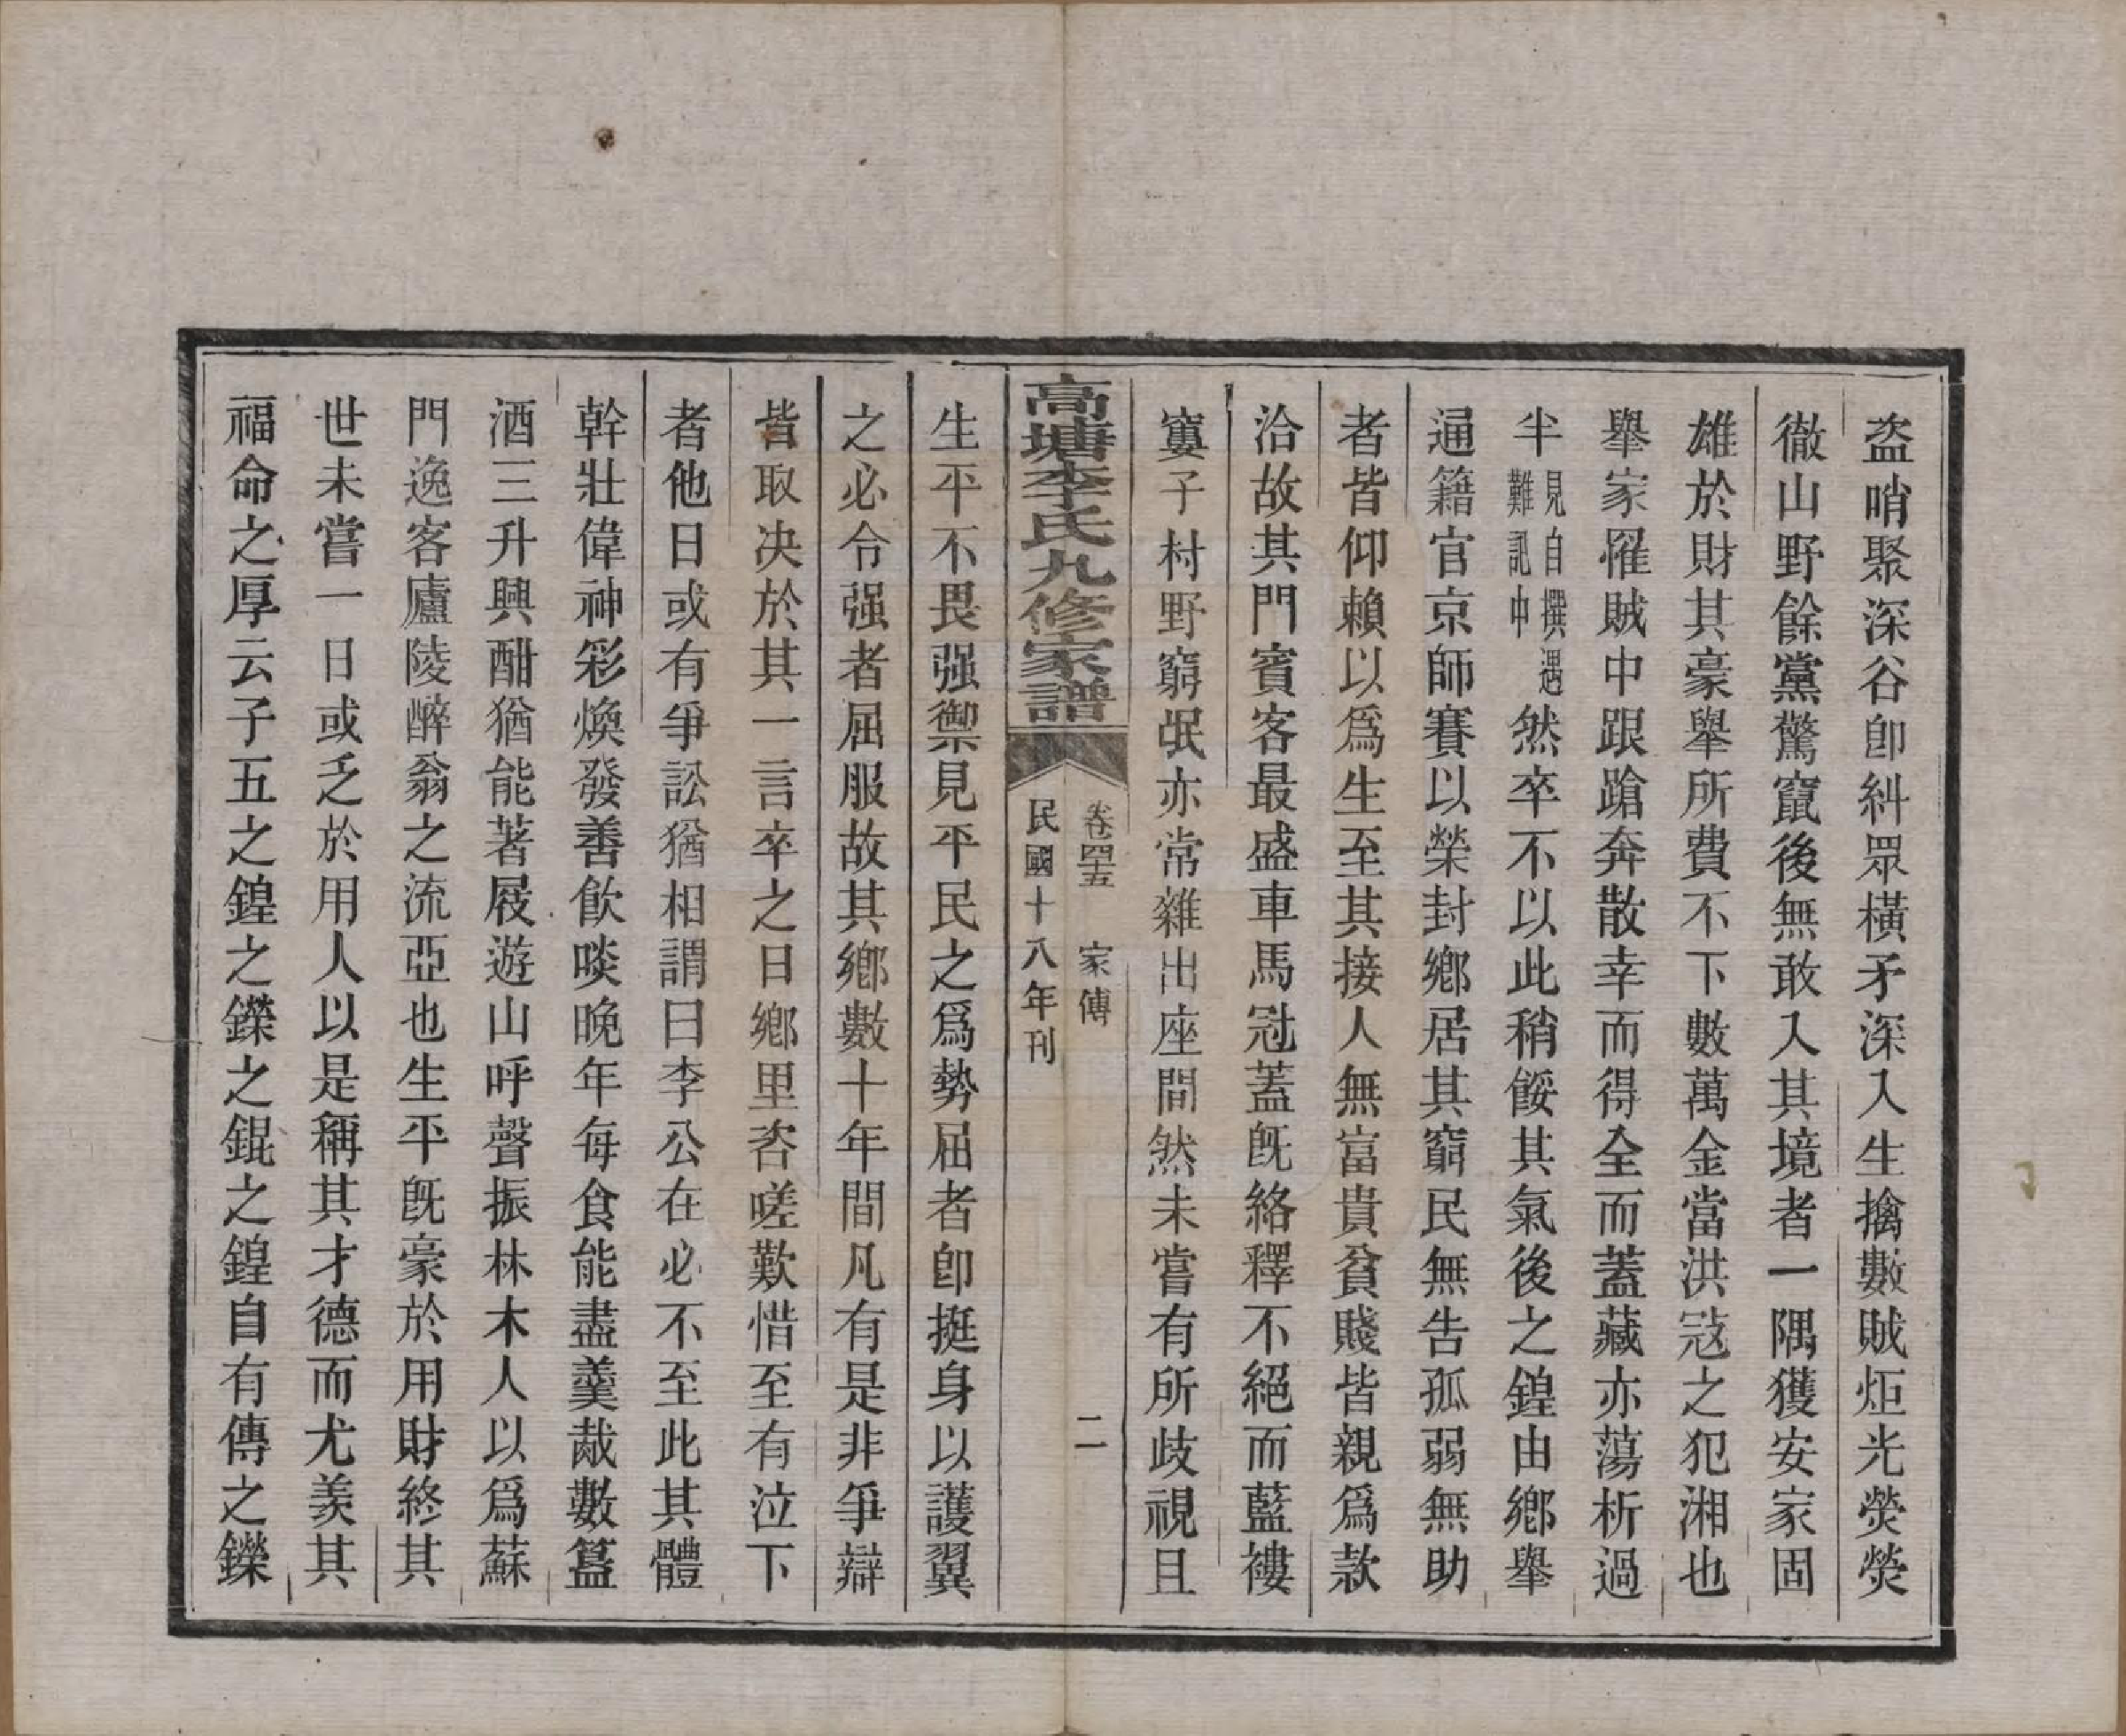 盗哨聚深谷卽糾眾橫矛深入生擒數賊炬光熒熒
徹山野餘黨驚竄後無敢入其境者一隅獲安家固
雄於財其豪舉所費不下數萬金當洪冦之犯湘也
舉家罹賊中踉蹌奔散幸而得全而蓋藏亦蕩析過
半見自撰遇難記中然卒不以此稍餒其氣後之鍠由鄉舉
通籍官京師賽以榮封鄉居其窮民無告孤弱無助
者皆仰賴以爲生至其接人無富貴貧賤皆親爲款
洽故其門賓客最盛車馬冠蓋旣絡釋不絕而藍褸
窶子村野窮氓亦常雜出座間然未嘗有所歧視且
高塘李氏九修家譜
卷四十五 家傳 二
民國十八年刊
生平不畏强禦見平民之爲勢屈者卽挺身以護翼
之必令强者屈服故其鄉數十年間凡有是非爭辯
皆取决於其一言卒之日鄉里咨嗟歎惜至有泣下
者他日或有爭訟猶相謂曰李公在必不至此其體
幹壯偉神彩煥發善飮啖晚年每食能盡羹胾數簋
酒三升興酣猶能著屐遊山呼聲振林木人以爲蘇
門逸客廬陵醉翁之流亞也生平旣豪於用財終其
世未嘗一日或乏於用人以是稱其才德而尤羨其
福命之厚云子五之鍠之鑅之錕之鍠自有傳之鑅